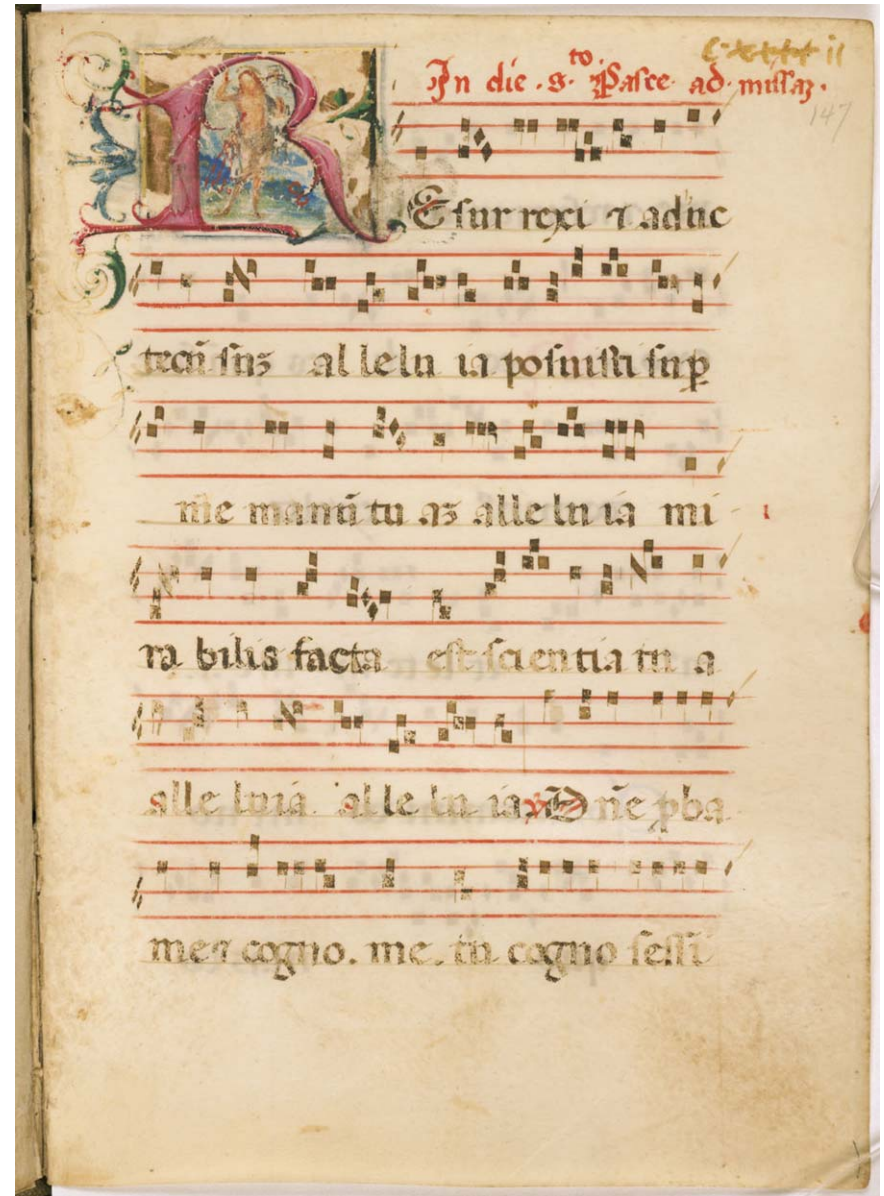 In die . s.to Pasce ad missaʒ .
147
REsurrexi ⁊ adhuc
tecū suʒ alleluia posuisti suꝑ
me manū tuaʒ alleluia mi
rabilis facta est scientia tua
alleluia alleluia. ℣ Dn̄e ꝓba
me ⁊ cogno. me. tu cognosessi